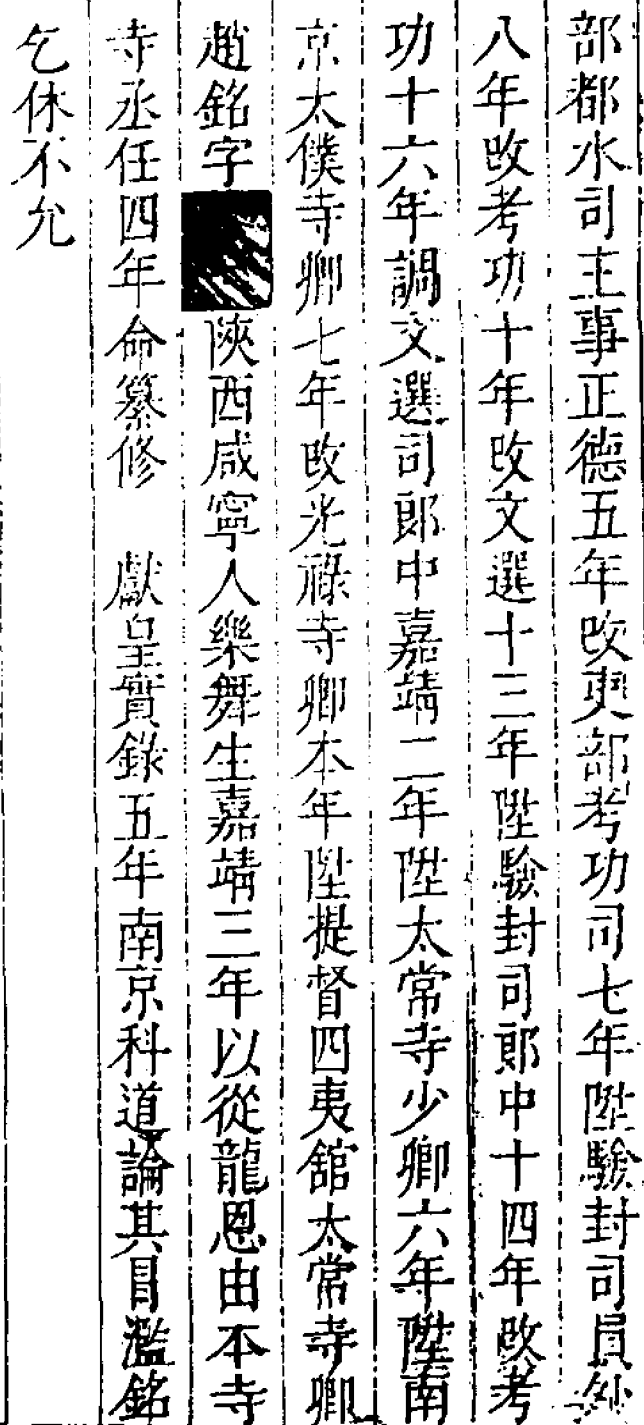 部都水司主事正德五年改吏部考功司七年陞驗封司員外
八年改考功十年改文選十三年陞驗封司郎中十四年改考
功十六年調文選司郎中嘉靖二年陞太常寺少卿六年陞南
京太僕寺卿七年改光祿寺卿本年陞提督四夷舘太常寺卿
趙銘字陝西咸寧人樂舞生嘉靖三年以從龍恩由本寺
寺丞任四年命纂修　獻皇實錄五年南京科道論其冒濫銘
乞休不允